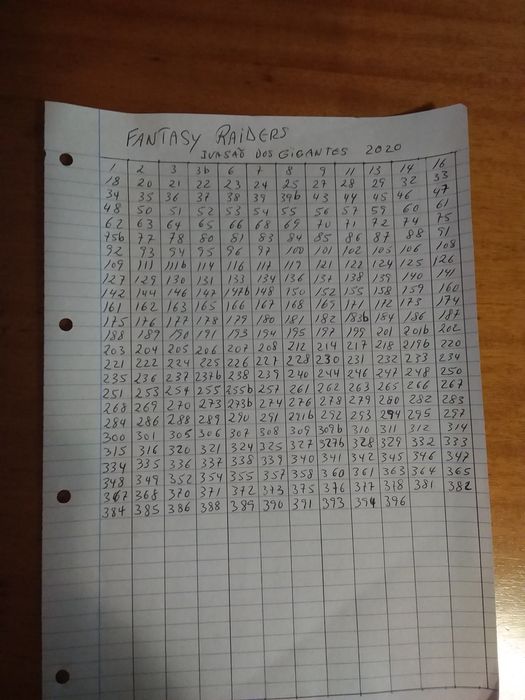 FANTASY RAIDERS
IUASÃO DOS GIGANTES 2020
1 2 3 3b 6 7 8 9 11 13 14 16
18 20 21 22 23 24 25 27 28 29 32 33
34 35 36 37 38 39 39b 43 44 45 46 47
48 50 51 52 53 54 55 56 57 59 60 61
62 63 64 65 66 68 69 70 71 72 74 75
75b 77 78 80 81 83 84 85 86 87 88 91
92 93 94 95 96 97 100 101 102 105 106 108
109 111 111b 114 116 117 119 121 122 124 125 126
127 129 130 131 133 134 136 137 138 139 140 141
142 144 146 147 147b 148 150 152 155 158 159 160
161 162 163 165 166 167 168 169 171 172 173 174
175 176 177 178 179 180 181 182 183b 184 186 187
188 189 190 191 193 194 195 197 199 201 201b 202
203 204 205 206 207 208 212 214 217 218 219b 220
221 222 224 225 226 227 228 230 231 232 233 234
235 236 237 237b 238 239 240 244 246 247 248 250
251 253 254 255 255b 257 261 262 263 265 266 267
268 269 270 273 273b 274 276 278 279 280 282 283
284 286 288 289 290 291 291b 292 293 294 295 297
300 301 305 306 307 308 309 309b 310 311 312 314
315 316 320 321 324 325 327 327b 328 329 332 333
334 335 336 337 338 339 340 341 342 345 346 347
348 349 352 354 355 357 358 360 361 363 364 365
367 368 370 371 372 373 375 376 377 378 381 382
384 385 386 388 389 390 391 393 394 396